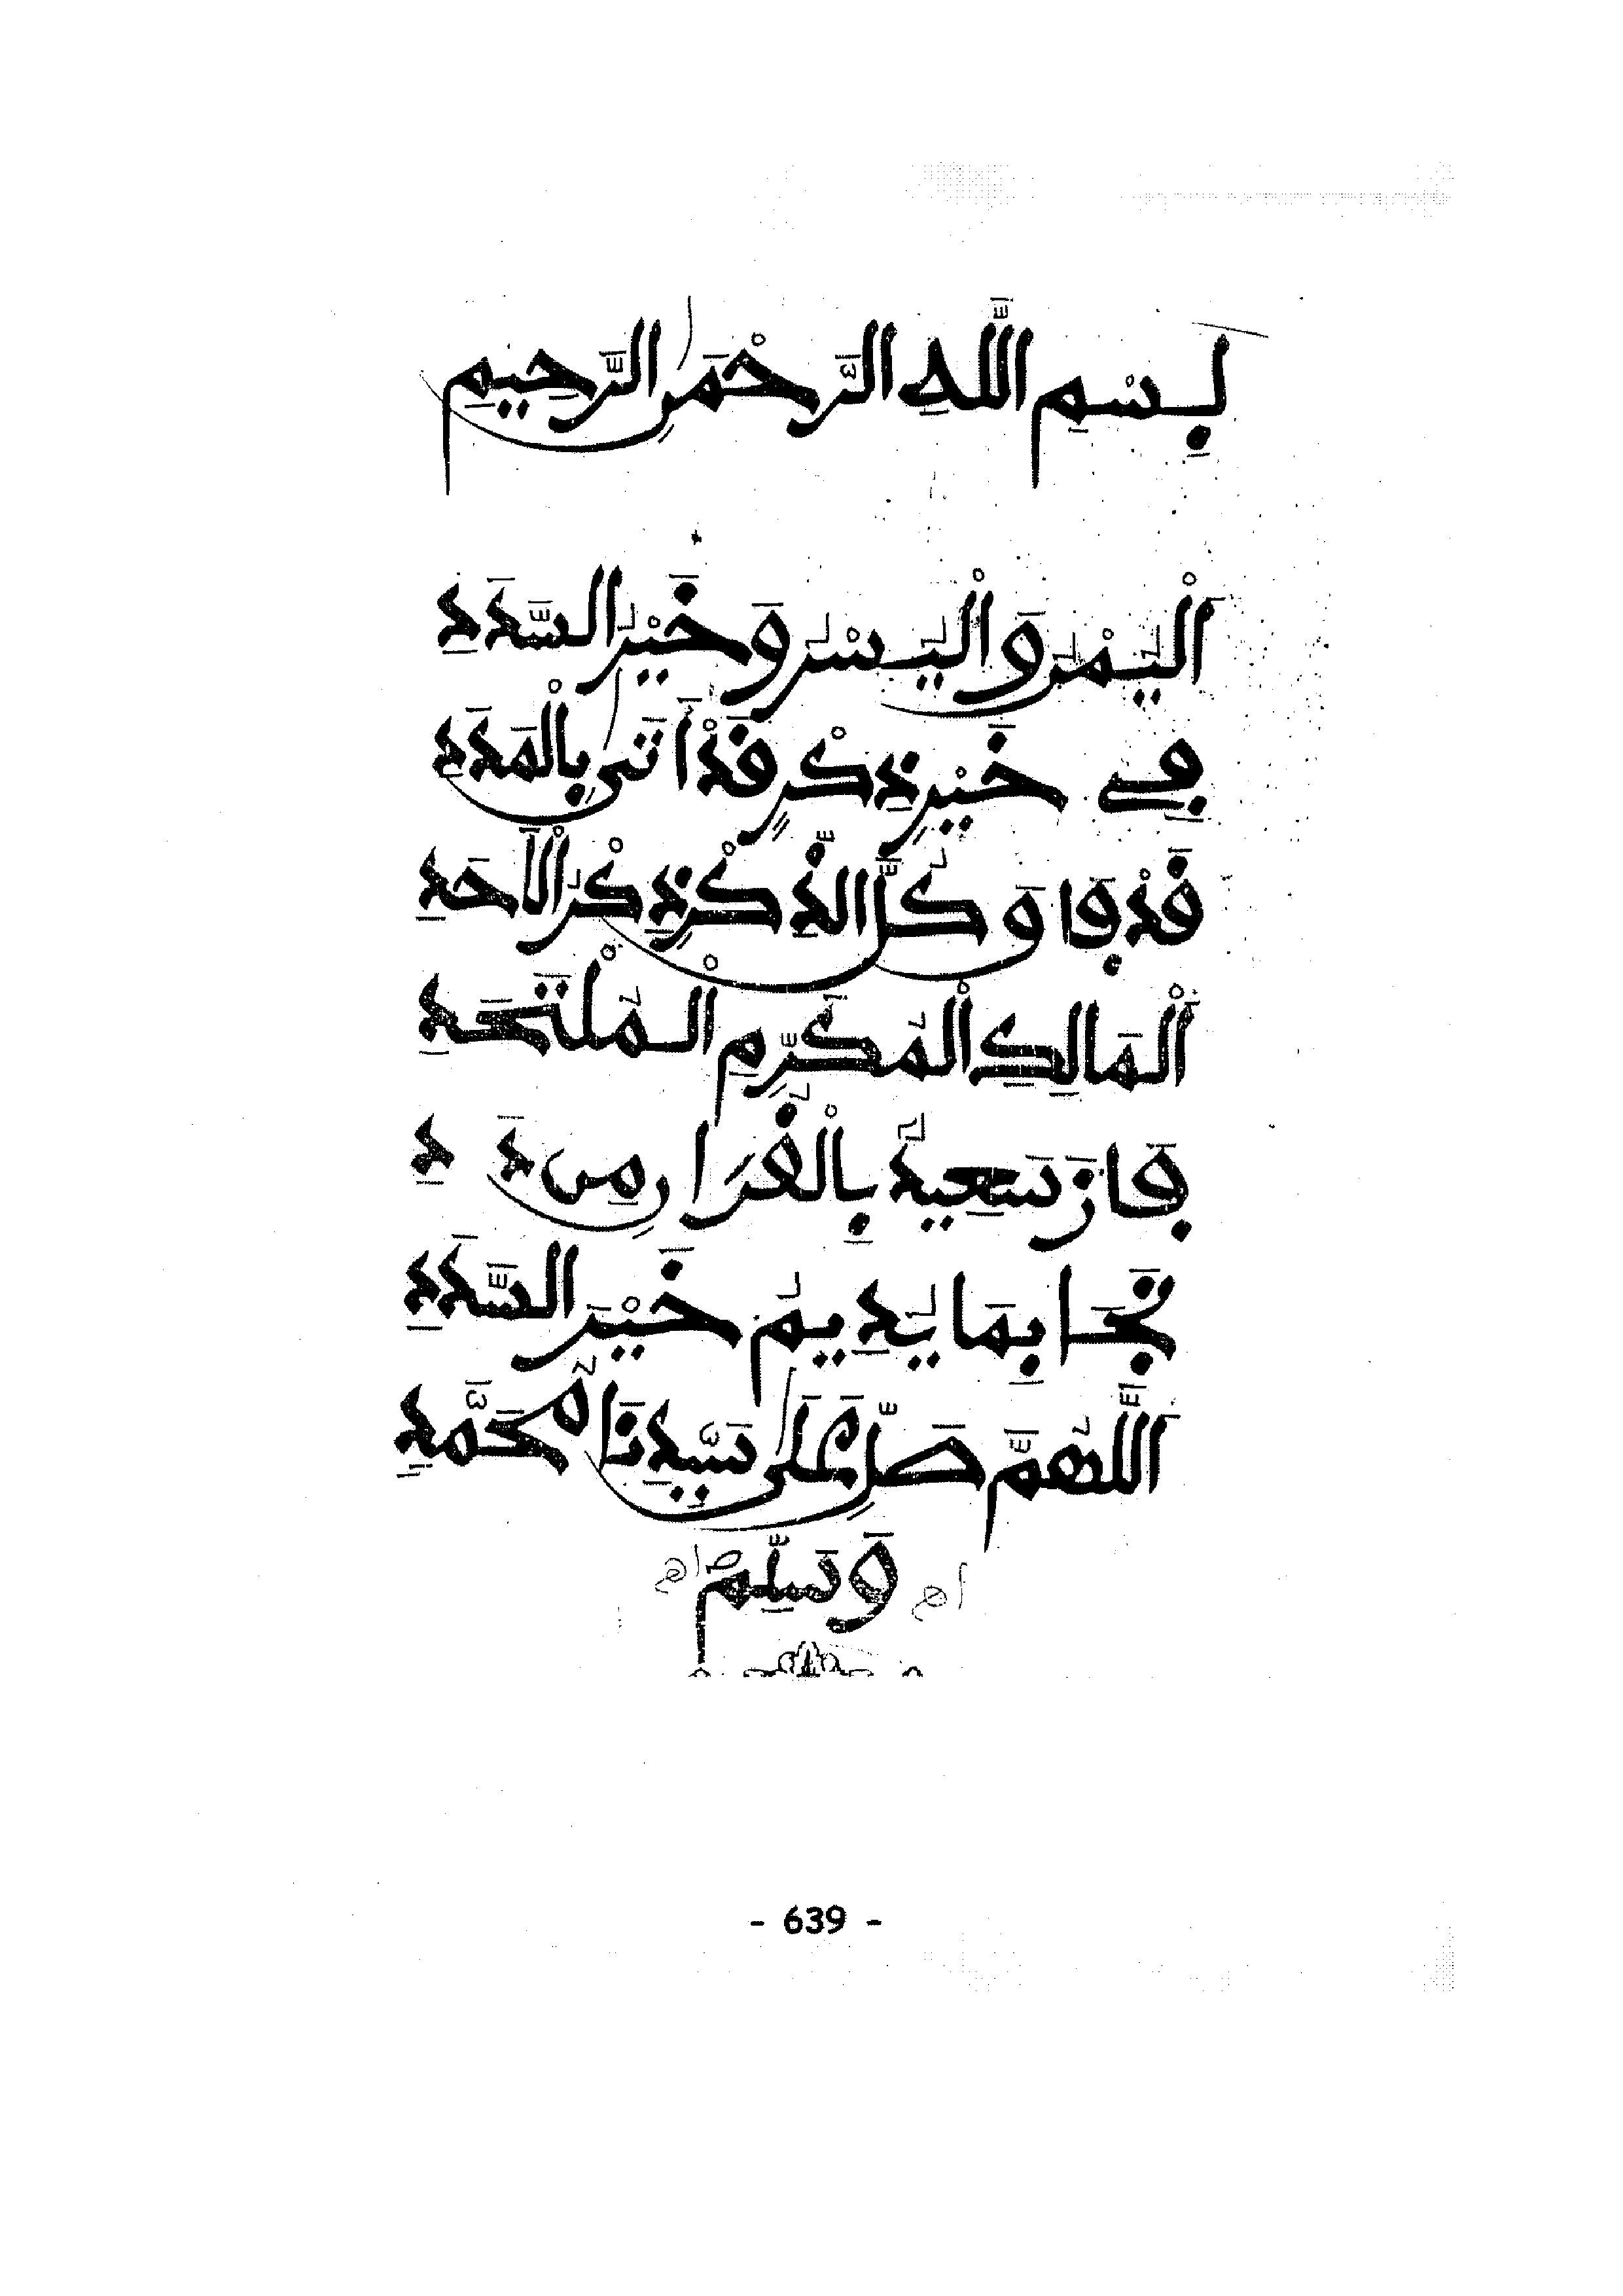 بِسْمِ اللَّهِ الرَّحْمَنِ الرَّحِيمِ
اَلْيُمْنُ وَالْيُسْرُ وَخَيْرُ السَّدَدِ
فِي خَيْرِ ذِكْرٍ قَدْ اَتَى بِالْمَدَدِ
قَدْ فَاقَ كُلَّ الذِّكْرِ ذِكْرُ الْأَحَدِ
اَلْمَالِكِ الْمُكَرِّمِ الْمُلْتَحَدِ
فَازَ سَعِيدٌ بِالْفُرَارِ مِنْ دَدِ
نَجَا بِمَا يُدِيمُ خَيْرَ السَّدَدِ
اَللَّهُمَّ صَلِّ عَلَى سَيِّدِنَا مُحَمَّدٍ
وَسَلِّمْ
- 639 -